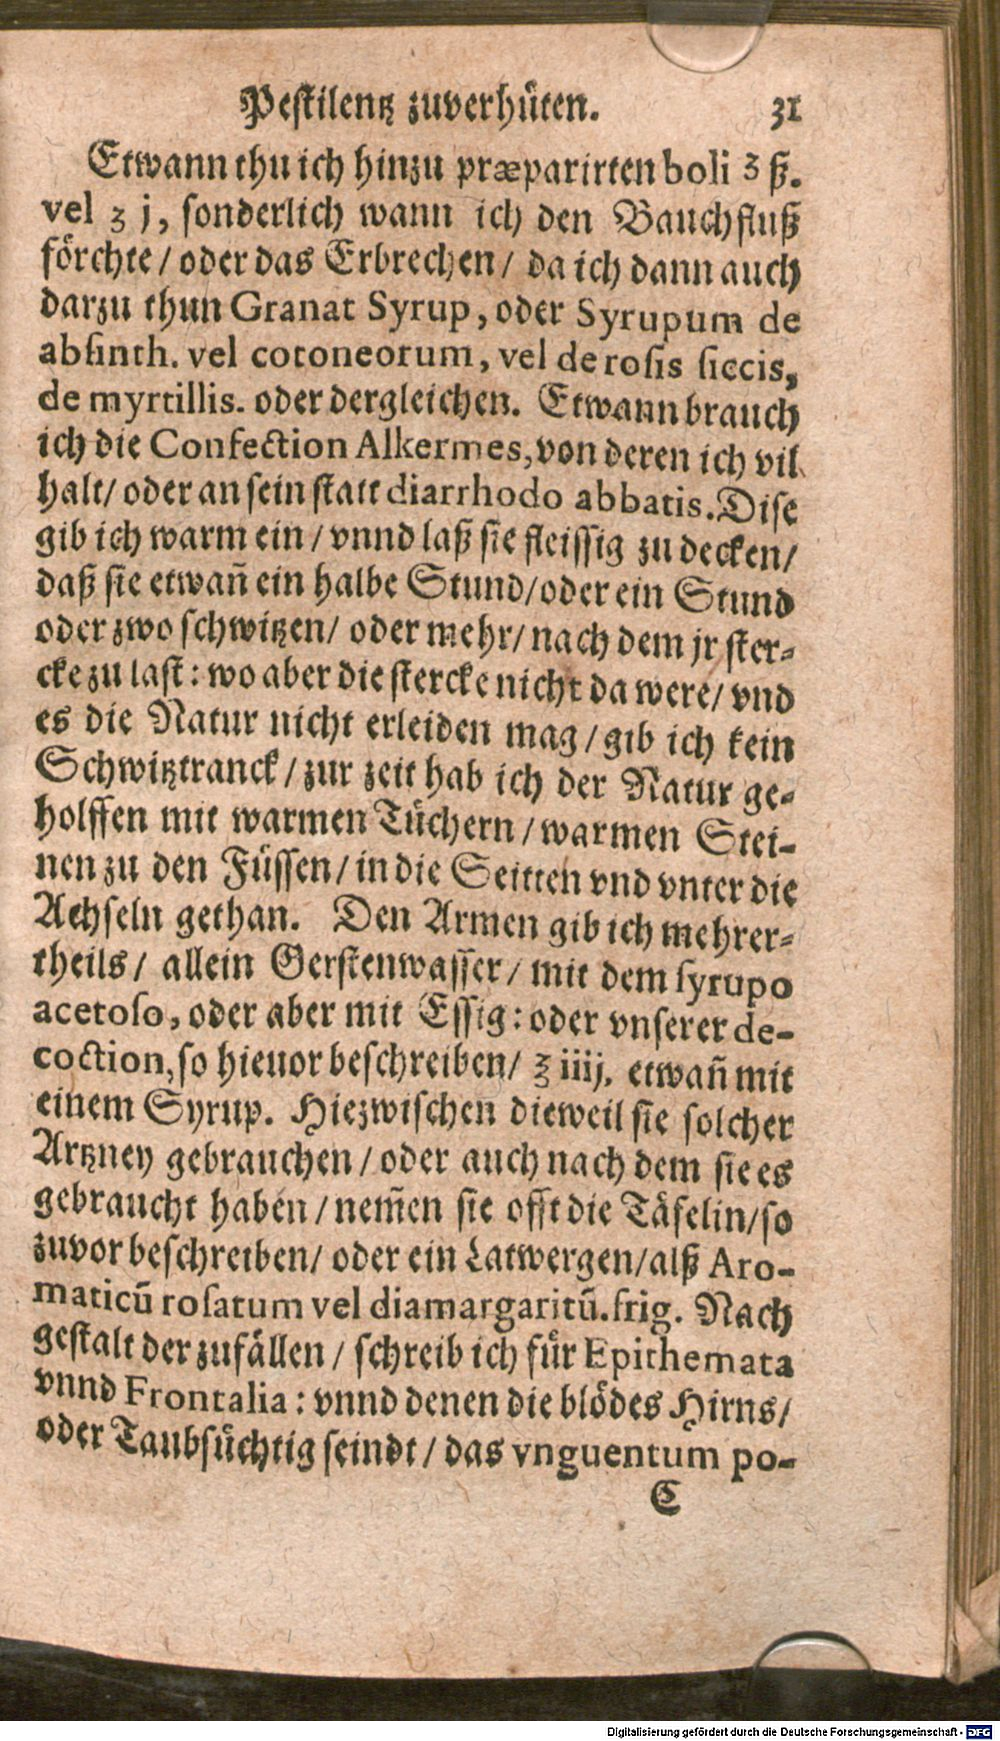 Pestilentz zuverhüten. 31
Etwann thu ich hinzu præparirten boli ʒ ß.
vel ʒ j, sonderlich wann ich den Bauchfluß
förchte / oder das Erbrechen / da ich dann auch
darzu thun Granat Syrup, oder Syrupum de
absinth. vel cotoneorum, vel de rosis siccis,
de myrtillis. oder dergleichen. Etwann brauch
ich die Confection Alkermes, von deren ich vil
halt / oder an sein statt diarrhodo abbatis. Dise
gib ich warm ein / vnnd laß sie fleissig zu decken /
daß sie etwañ ein halbe Stund / oder ein Stund
oder zwo schwitzen / oder mehr / nach dem jr ster-
cke zu last: wo aber die stercke nicht da were / vnd
es die Natur nicht erleiden mag / gib ich kein
Schwitztranck / zur zeit hab ich der Natur ge-
holffen mit warmen Tüchern / warmen Stei-
nen zu den Füssen / in die Seitten vnd vnter die
Achseln gethan. Den Armen gib ich mehrer-
theils / allein Gerstenwasser / mit dem syrupo
acetoso, oder aber mit Essig: oder vnserer de-
coction, so hieuor beschreiben / ʒ iiij. etwañ mit
einem Syrup. Hiezwischen dieweil sie solcher
Artzney gebrauchen / oder auch nach dem sie es
gebraucht haben / nem̃en sie offt die Täfelin / so
zuvor beschreiben / oder ein Latwergen / alß Aro-
maticũ rosatum vel diamargaritũ. frig. Nach
gestalt der zufällen / schreib ich für Epithemata
vnnd Frontalia: vnnd denen die blödes Hirns /
oder Taubsüchtig seindt / das vnguentum po-
C
Digitalisierung gefördert durch die Deutsche Forschungsgemeinschaft - DFG